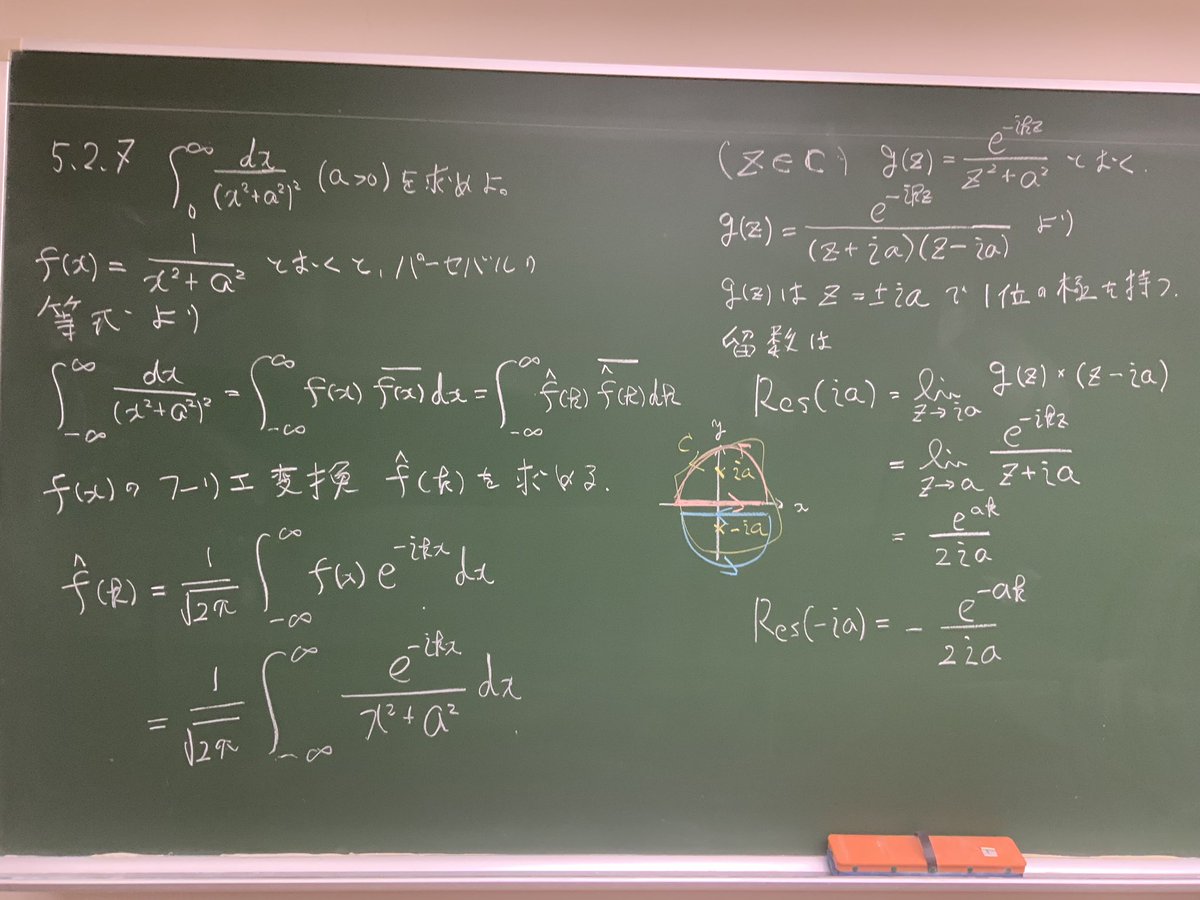 5.2.7 ∫_0^∞ dx/(x²+a²)² (a>0) を求めよ。
f(x) = 1/(x²+a²) とおくと, パーセバルの
等式より
∫_{-∞}^∞ dx/(x²+a²)² = ∫_{-∞}^∞ f(x) \overline{f(x)} dx = ∫_{-∞}^∞ \hat{f}(k) \overline{\hat{f}(k)} dk
f(x)のフーリエ変換 \hat{f}(k)を求める.
\hat{f}(k) = 1/√2π ∫_{-∞}^∞ f(x) e^{-ikx} dx
= 1/√2π ∫_{-∞}^∞ e^{-ikx}/(x²+a²) dx
(z∈C) g(z) = e^{-ikz}/(z²+a²) とおく.
g(z) = e^{-ikz}/((z+ia)(z-ia)) より
g(z)は z=±iaで1位の極を持つ.
留数は
Res(ia) = lim_{z→ia} g(z)×(z-ia)
= lim_{z→a} e^{-ikz}/(z+ia)
= e^{ak}/2ia
Res(-ia) = - e^{-ak}/2ia
y
C
ia
x
-ia